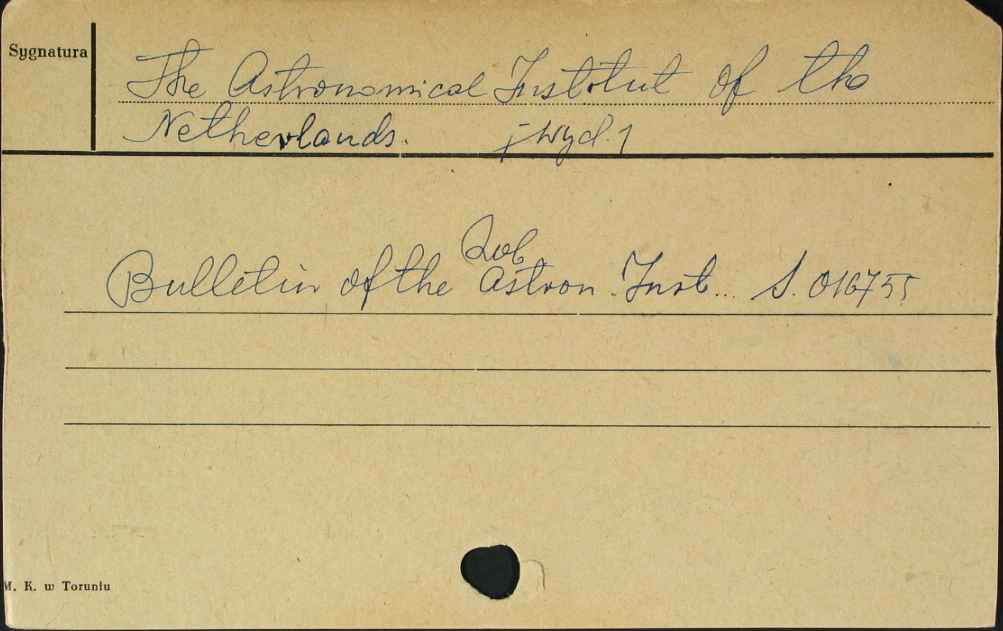 Sygnatura
The Astronomical Institut of the
Netherlands. [wyd.]
Zob
Bulletin of the Astron. Inst... S. 016755
M. K. w Toruniu